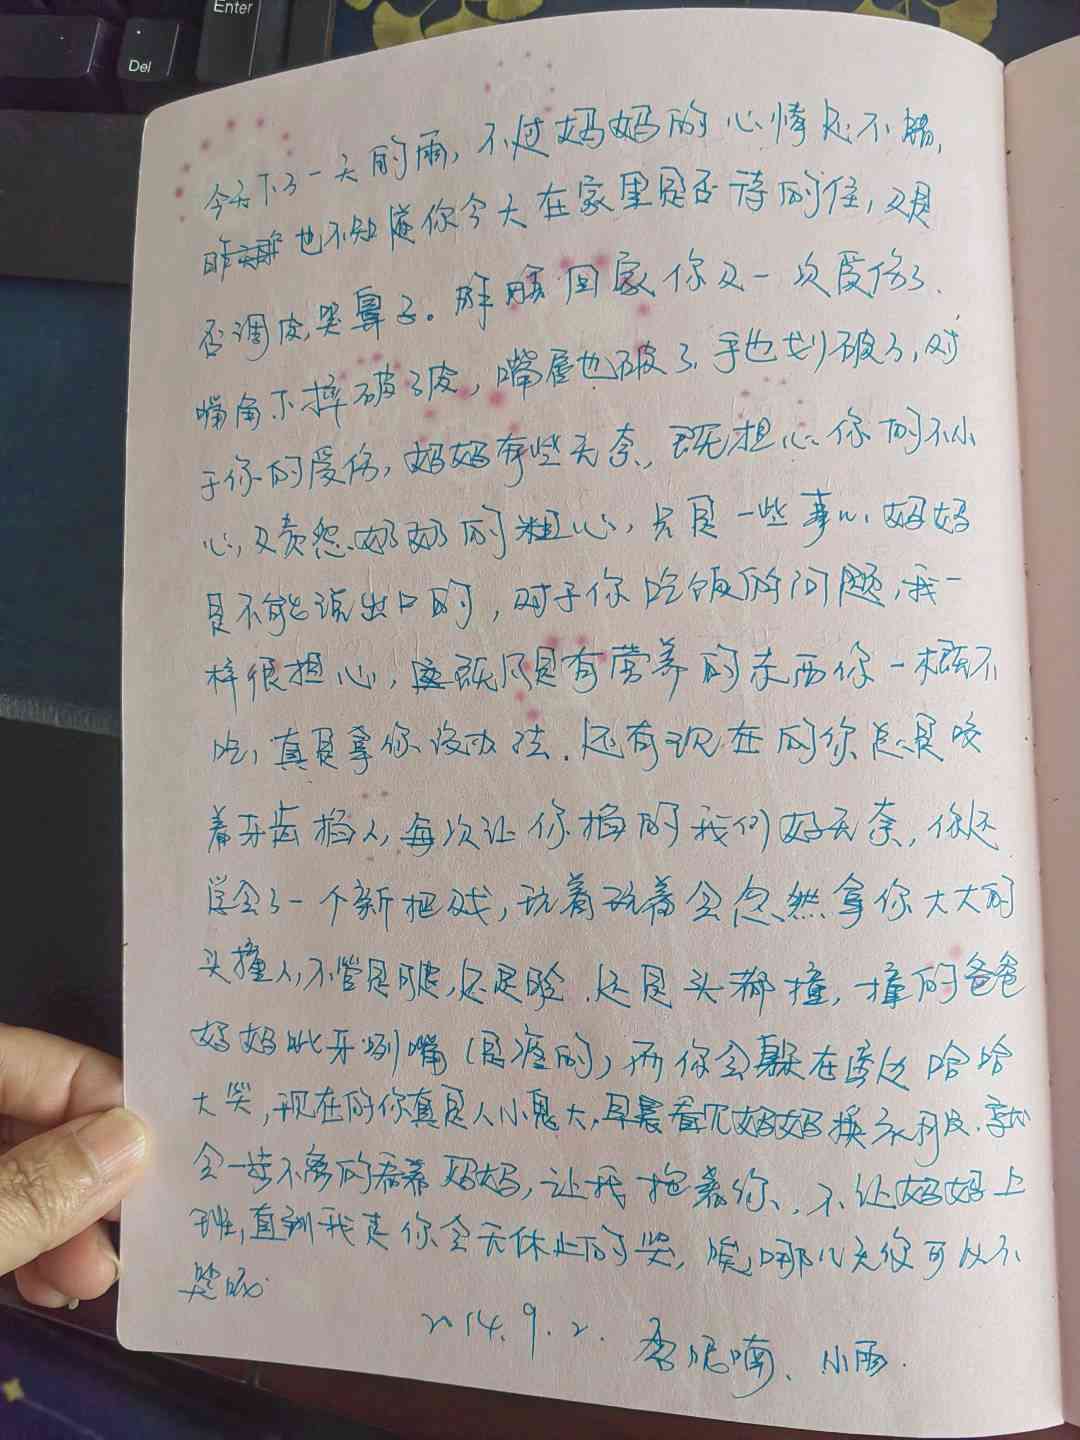 Enter
Del
今天下了一天的雨，不过妈妈的心情还不错，
也不知道你今天在家里是否待的住，又是
否调皮，哭鼻子。昨晚回家你又一次受伤了、
嘴角下摔破了皮，嘴唇也破了，手也划破了，对
于你的受伤，妈妈有些无奈，既担心你的不小
心，又责怨奶奶的粗心，只是一些事儿，妈妈
是不能说出口的，对于你吃饭的问题，我一
样很担心，凡是有营养的东西你一概不
吃，真是拿你没办法．还有现在的你总是咬
着牙齿掐人，每次让你掐的我们好无奈，你还
学会了一个新把戏，玩着玩着会忽然拿你大大的
头撞人，不管是腿，还是脸．还是头都撞，撞的爸爸
妈妈呲牙咧嘴（是疼的），而你会躲在旁边哈哈
大笑，现在的你真是人小鬼大，早晨看见妈妈换衣服，就
会一步不离的看着妈妈，让我抱着你、不让妈妈上
班，直到我走你会无休止的哭，唉，哪几天你可以不
哭呢
2014.9.2. 李妮喃、小雨．